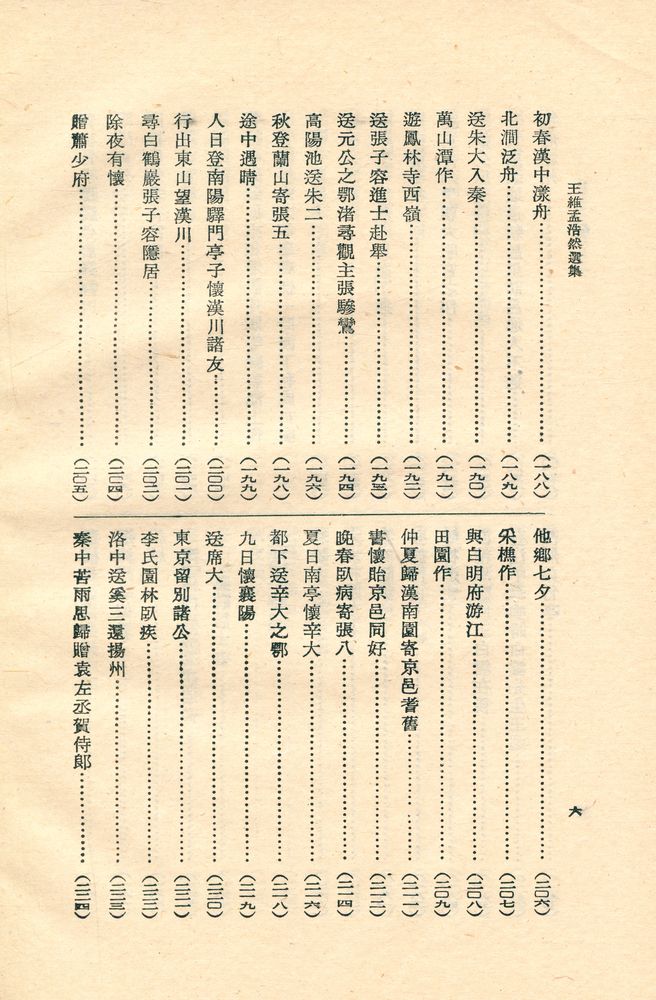 王維孟浩然選集
六
初春漢中漾舟……（一八八）
北澗泛舟……（一八九）
送朱大入秦……（一九〇）
萬山潭作……（一九一）
遊鳳林寺西嶺……（一九二）
送張子容進士赴舉……（一九三）
送元公之鄂渚尋觀主張驂鸞……（一九四）
高陽池送朱二……（一九六）
秋登蘭山寄張五……（一九八）
途中遇晴……（一九九）
人日登南陽驛門亭子懷漢川諸友……（二〇〇）
行出東山望漢川……（二〇一）
尋白鶴巖張子容隱居……（二〇二）
除夜有懷……（二〇四）
贈蕭少府……（二〇五）
他鄉七夕……（二〇六）
采樵作……（二〇七）
與白明府游江……（二〇八）
田園作……（二〇九）
仲夏歸漢南園寄京邑耆舊……（二一一）
書懷貽京邑同好……（二一二）
晚春臥病寄張八……（二一四）
夏日南亭懷辛大……（二一六）
都下送辛大之鄂……（二一八）
九日懷襄陽……（二一九）
送席大……（二二〇）
東京留別諸公……（二二一）
李氏園林臥疾……（二二二）
洛中送奚三還揚州……（二二三）
秦中苦雨思歸贈袁左丞賀侍郎……（二二四）